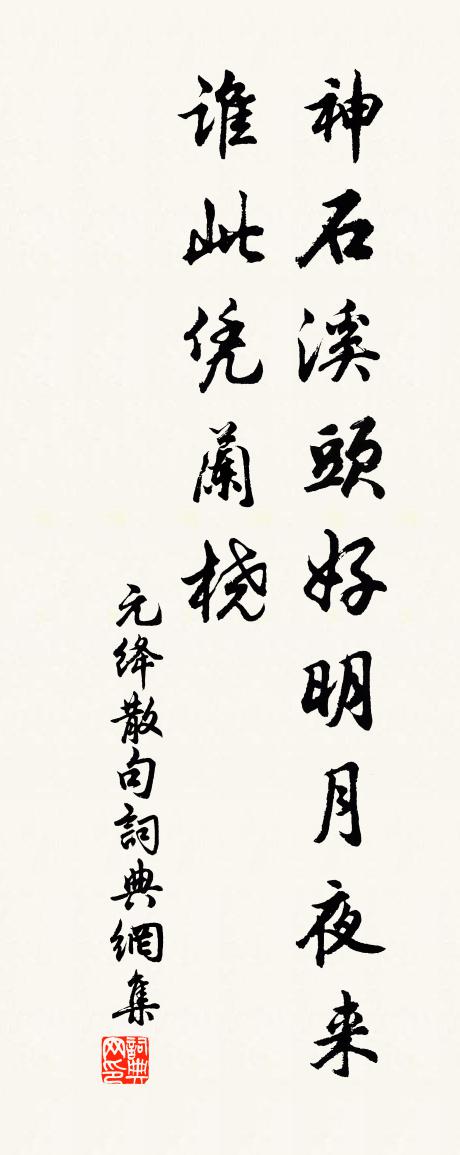 神石溪頭好明月夜来
谁此凭蘭桡
元绛散句詞典網集
詞典网印